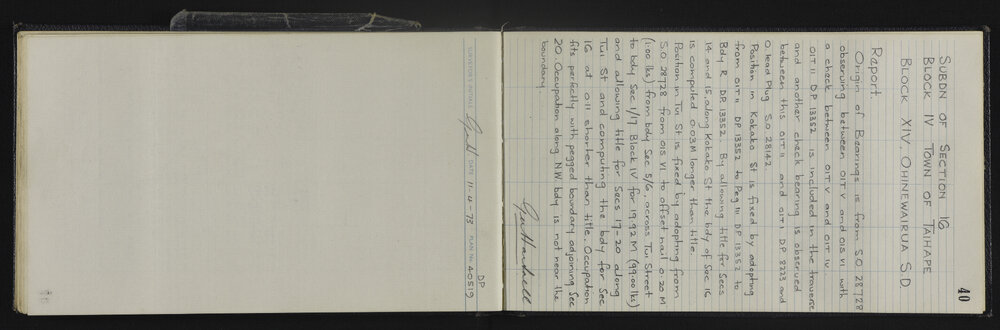 40
SUBDN OF SECTION 16
BLOCK IV TOWN OF TAIHAPE
BLOCK XIV OHINEWAIRUA S D
Report
Origin of Bearings is from S.O 28728
observing between OIT V and OIS VI with
a check between OIT V and OIT IV
OIT II DP 13352 is included in the traverse
and another check bearing is observed
between this OIT II and OIT I DP 8223 and
O Lead Plug S.O 28142.
Position in Kokako St is fixed by adopting
from OIT II DP 13352 to Peg III DP 13352 to
Bdy R DP 13352. By allowing title for Secs
14 and 15, along Kokako St the bdy of Sec 16
is computed 0.03M longer than title.
Position in Tui St is fixed by adopting from
S.O 28728 from OIS VI to offset nail 0.20 M
(1.00 lks) from bdy Sec 5/6, across Tui Street
to bdy Sec 1/17 Block IV for 19.92 M (99.00 lks)
and allowing title for Secs 17-20 along
Tui St and computing the bdy for Sec
16 at 0.11 shorter than title. Occupation
fits perfectly with pegged boundary adjoining Sec
20 Occupation along NW bdy is not near the
boundary.
SURVEYOR'S INITIALS DATE 11-4-73 PLAN No. DP 40519